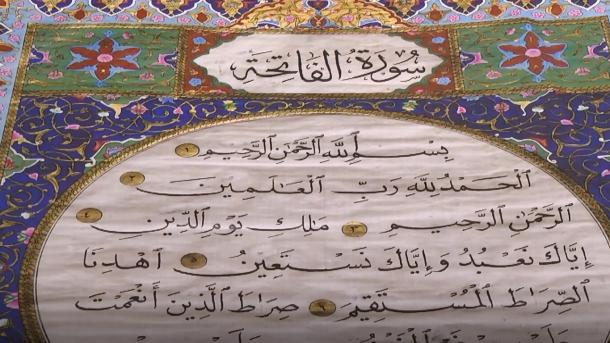 سُورَةُ ٱلْفَاتِحَةِ
بِسْمِ ٱللَّهِ ٱلرَّحْمَٰنِ ٱلرَّحِيمِ ١
ٱلْحَمْدُ لِلَّهِ رَبِّ ٱلْعَٰلَمِينَ ٢
ٱلرَّحْمَٰنِ ٱلرَّحِيمِ ٣ مَٰلِكِ يَوْمِ ٱلدِّينِ ٤
إِيَّاكَ نَعْبُدُ وَإِيَّاكَ نَسْتَعِينُ ٥ ٱهْدِنَا
ٱلصِّرَٰطَ ٱلْمُسْتَقِيمَ ٦ صِرَٰطَ ٱلَّذِينَ أَنْعَمْتَ